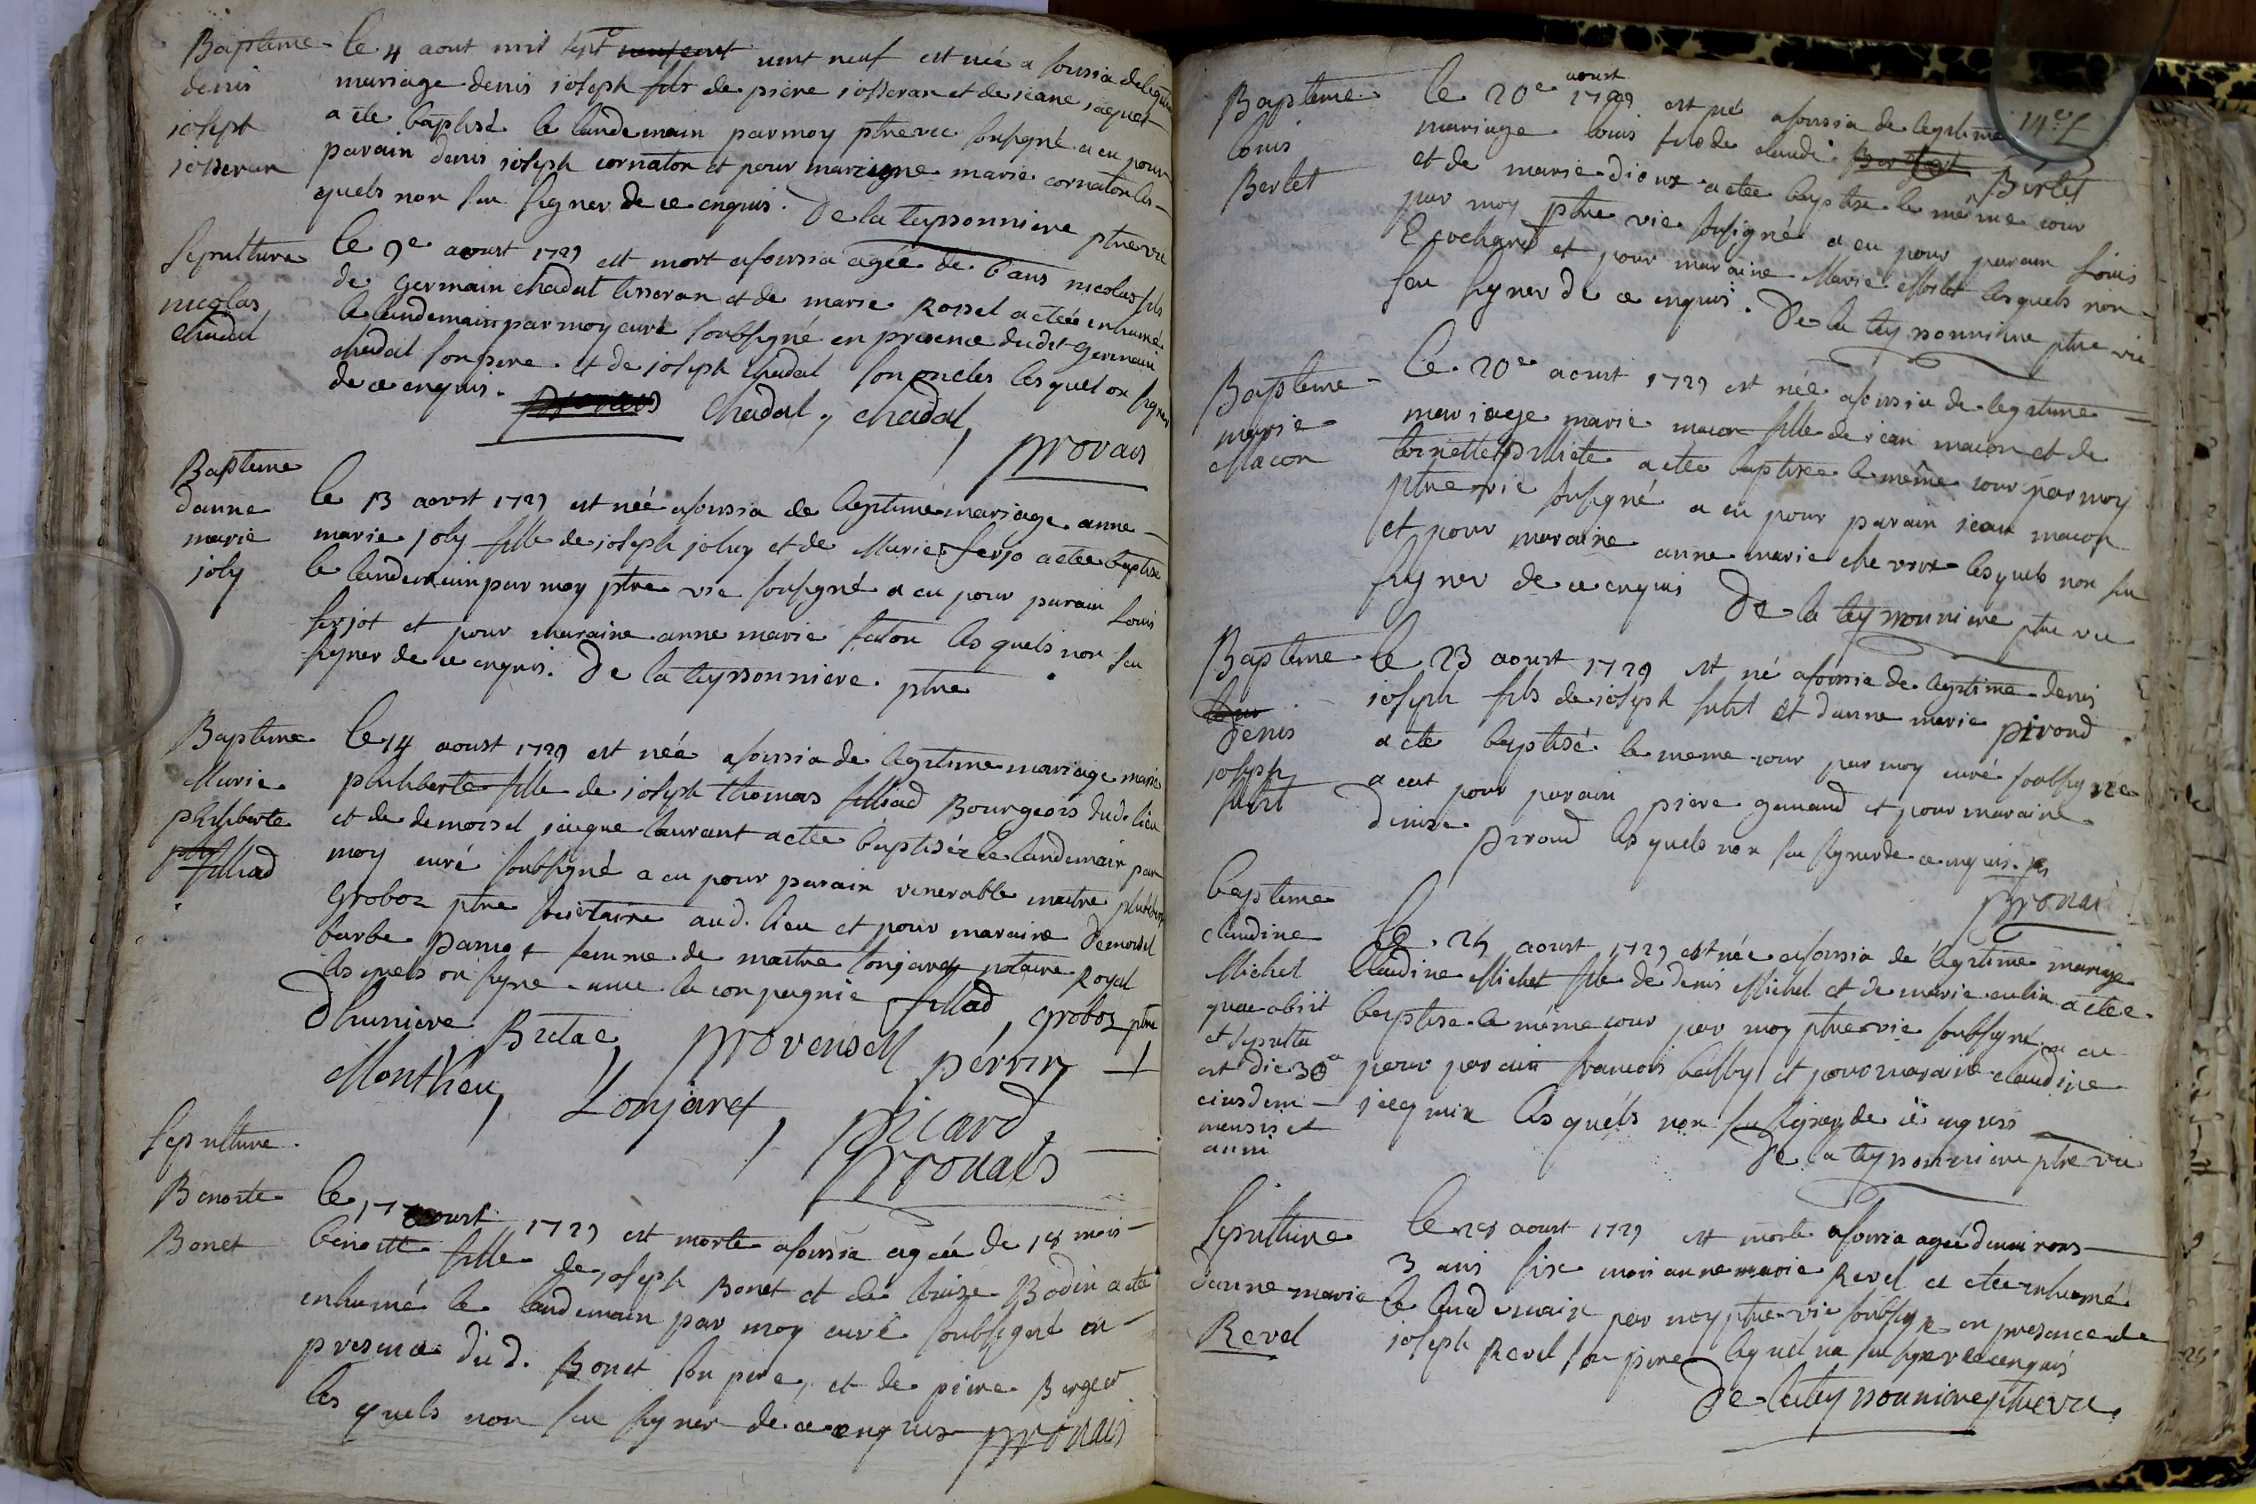 Bapteme
denis
joseph
josseran
le 4 aout mil sept neuf cent vint neuf est née a foissia de legitime
mariage denis joseph fils de piere josseran et de jeane jaquet
a ete baptisé le landemain par moy ptre vic soussigné a eu pour
parain denis joseph cornaton et pour maraigne marie cornaton les
quels non su signer de ce enquis. De la teyssonniere ptre vic
Sepulture
nicolas
chadal
le 9e aoust 1729 est mort afoissia agée de 6 ans nicolas fils
de germain chadal tisseran et de marie Rossel a etée enhumé
le landemain par moy curé soubsigné en presence dudit germain
chadal son pere et de joseph chadal son oncles lesquel on signé
de ce enquis. chadal, chadal,
provais
Bapteme
danne
marie
joly
le 13 aoust 1729 est née afoissia de legitime mariage anne
marie joly fille de joseph joly et de Marie ferjo a etée baptise
le landemain par moy ptre vic sousigné a eu pour parain Louis
ferjot et pour maraine anne marie faton les quels non su
signer de ce enquis. De la teyssonniere ptre
Bapteme
Marie
philiberte
filliad
le 14 aoust 1729 est née afoissia de legitime mariage marie
philiberte fille de joseph thomas filliad Bourgeois dud. lieu
et de demoisel jacque laurant a etée baptisée le landemain par
moy curé soubsigné a eu pour parain venerable maitre philibert
groboz ptre societaire aud. lieu et pour maraine Demoisel
barbe Pamet femme de maitre Lonjaret notaire Royal
les quels on signe avec la conpagnie filliad, groboz ptre
Dhuniere Bretae, provensell perrin
Monthieu, Lonjaret, picard
provais
Sepulture
Benoite
Bonet
le 17 aoust 1729 est morte afoissia agée de 18 mois
benoitte fille de joseph Bonet et de louize Bodin a ete
enhumé le landemain par moy curé soubsigné en
presence dud. Bonet son pere, et de piere Berger
les quels non su signer de ce enquis provais
14e f
Bapteme
louis
Berlet
aoust
le 20e 1729 est né afoissia de legitime
mariage louis fils de claude Berlet
et de marie dioux a etée baptise le même jour
par moy ptre vic soussigné a eu pour parain louis
Ecochard et pour maraine Marie Morlet lesquels non
seu signer de ce enquis. De la teyssonniere ptre vic
Bapteme
marie
Macon
le 20e aoust 1729 est née afoissia de legitime
mariage marie macon fille de jean macon et de
toinette Milliete a etée baptisée le même jour par moy
ptre vic sousigné a eu pour parain jean macon
et pour maraine anne marie chevrot lesquels non su
signer de ce enquis De la teyssonniere ptre vic
Bapteme
Denis
joseph
futit
le 23 aoust 1729 est né afoissia de legitime denis
joseph fils de joseph futit et danne marie piroud
a ete baptisé le meme jour par moy curé soubsigné
a eut pour parain piere gamaud et pour maraine
denise piroud les quels non su signer de ce enquis.
provais
bapteme
claudine
Michel
quae obiit
et sepulta
est die 30a
eiusdem
mensis et
anni
le 24 aoust 1729 est née afoissia de legitime mariage
Claudine Michel fille de Denis Michel et de marie aulin a etée
baptise le même jour par moy ptre vic soubsigné a eu
pour parain francois balby et pour maraine claudine
jacquin les quels non su signer de ce enquis
De la teyssonniere ptre vic
Sepulture
danne marie
Revel
le 28 aoust 1729 est morte afoissia agée denvirons
3 ans sise mois anne marie Revel a etée enhumé
le landemain par moy ptre vic soubsigne en presence de
joseph Revel son pere lequel na su signer de ce enquis
De la teyssonniere ptre vic.